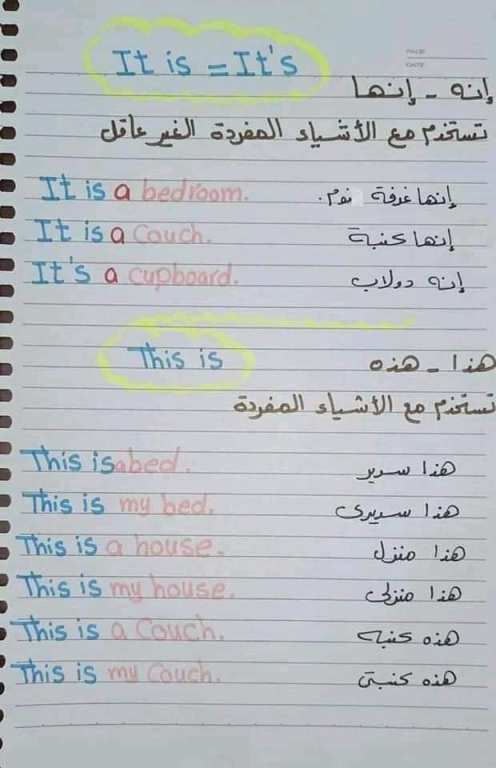 It is = It's
PAGE
DATE
إنه - إنها
تستخدم مع الأشياء المفردة الغير عاقل
It is a bedroom. إنها غرفة نوم.
It is a Couch. إنها كنبة
It's a cupboard. إنه دولاب
This is هذا - هذه
تستخدم مع الأشياء المفردة
This is a bed. هذا سرير
This is my bed. هذا سريرى
This is a house. هذا منزل
This is my house. هذا منزلى
This is a Couch. هذه كنبه
This is my Couch. هذه كنبتى